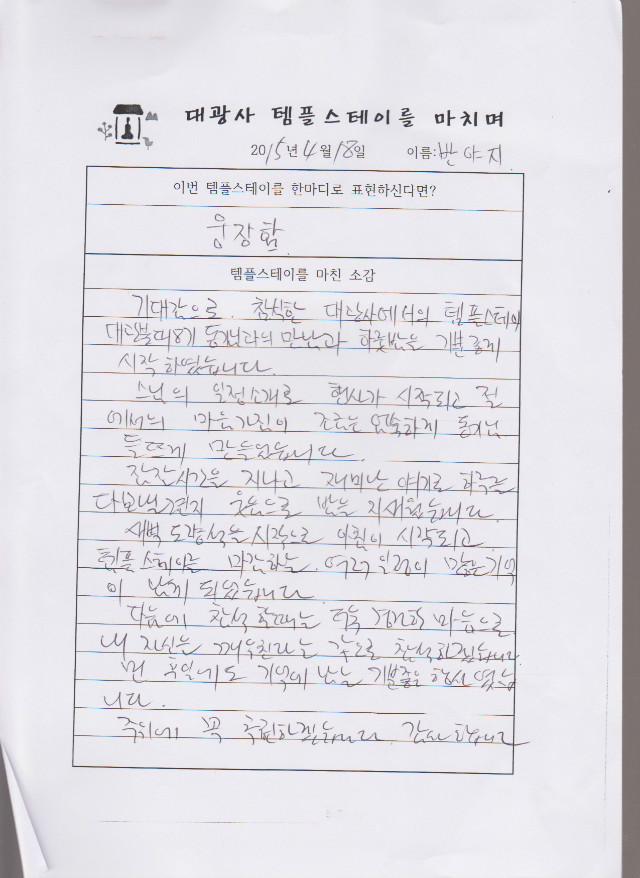 대광사 템플스테이를 마치며
2015년 4월 18일 이름: 반야지
이번 템플스테이를 한마디로 표현하신다면?
웅장함
템플스테이를 마친 소감
기대감으로 참석한 대광사에서의 템플스테이
대불 8기 동기님과의 만남과 하룻밤을 기분좋게
시작 하였습니다.
스님의 일정소개로 행사가 시작되고 절
에서의 마음가짐이 조금은 엄숙하게 동기님
들뜨게 만들었습니다.
잠깐시간을 지나고 재미난 얘기로 하루를
웃음으로 밤을 지새웠습니다.
새벽 도량석을 시작으로 아침이 시작되고
템플스테이를 마감하는 여러 일정이 많은 기억
이 남게 되었습니다
다음에 참석 할때는 더욱 경건한 마음으로
내 자신을 깨우친다는 각오로 참석하겠습니다
먼 훗일에도 기억에 남는 기분좋은 행사 였습
니다.
주위에 꼭 추천하겠습니다. 감사합니다